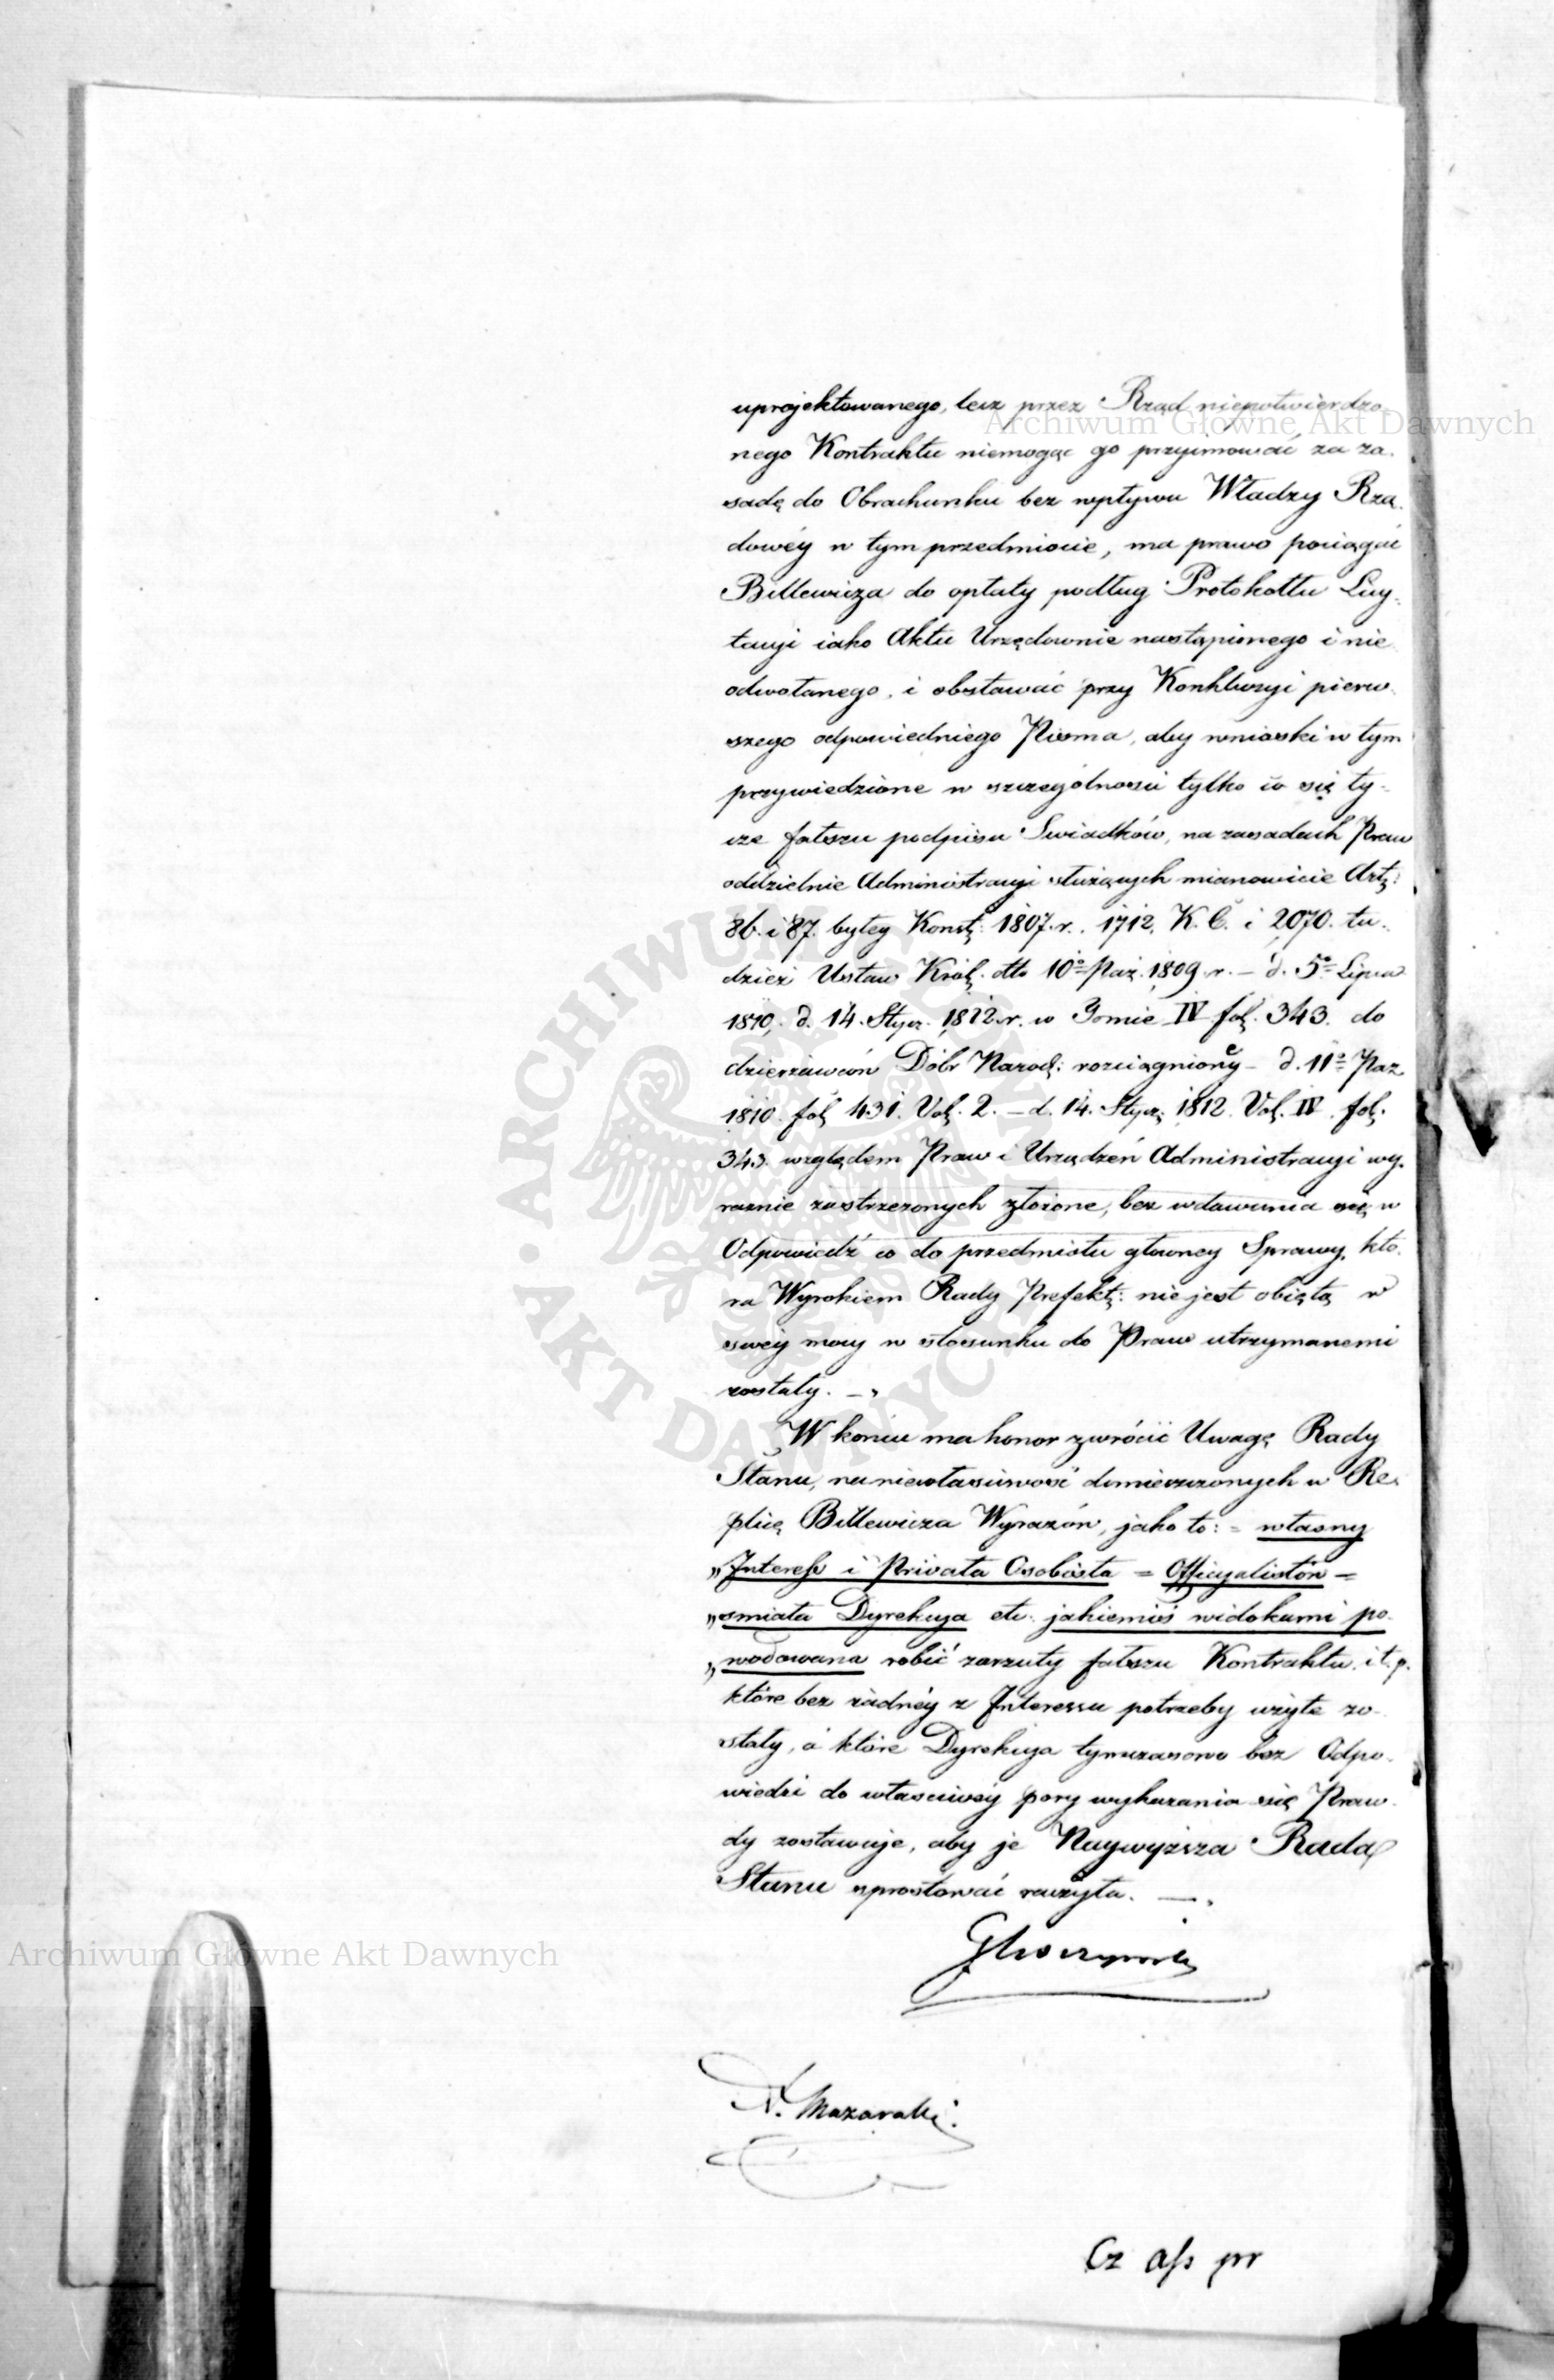 uprojektowanego, lecz przez Rząd niepotwierdzo-
nego Kontraktu niemogąc go przyimować za za-
sadę do Obrachunku bez wpływu Władzy Rzą-
dowéy w tym przedmiocie, ma prawo pociągać
Billewicza do opłaty podług Protokołłu Licy-
tacyi iako Aktu Urzędownie nastąpionego i nie
odwołanego, i obstawać przy Konkluzyi pierw-
szego odpowiedniego Pisma, aby wnioski w tym
przywiedzione w szczególnosci tylko co się ty-
cze fałszu podpisu Swiadków, na zasadach Praw
oddzielnie Administracyi służących mianowicie Art:
86. i 87. byłey Konst: 1807. r. 1712. K. C. i 2070. tu-
dzież Ustaw Król. dtto 10º Paź. 1809 r. – d. 5º Lipca
1810, d. 14. Stycz. 1812. r. w Tomie IV fol. 343. do
dzierżawców Dóbr Narod: rozciągnioney – d. 11º Paz
1810. fol 431. Vol. 2. – d. 14. Stycz: 1812. Vol. IV. fol.
343. względem Praw i Urządzeń Administracyi wy-
raznie zastrzezonych złożone, bez wdawania się w
Odpowiedź co do przedmiotu głowney Sprawy, któ-
ra Wyrokiem Rady Prefekt: nie jest obiętą w
swéy mocy w stosunku do Praw utrzymanemi
zostały. –
W koncu ma honor zwrócić Uwagę Rady
Stanu, na niewłasciwość umieszczonych w Re-
plicę Billewicza Wyrazów, jako to: = własny
„Interess i Privata Osobista = Officyalistów =
„smiała Dyrekcya etc: jakiemiś widokami po-
„wodowana robić zarzuty fałszu Kontraktu. i t. p.
które bez żadnéy z Interessu potrzeby użyte zo-
stały, a które Dyrekcya tymczasowo bez Odpo-
wiedzi do własciwéy pory wykazania się Praw-
dy zostawuje, aby je Naywyższa Rada
Stanu sprostować raczyła. –
N. Mazaraki.
Cz ass pr
Archiwum Główne Akt Dawnych
Archiwum Główne Akt Dawnych
ARCHIWUM GŁÓWNE • AKT DAWNYCH •